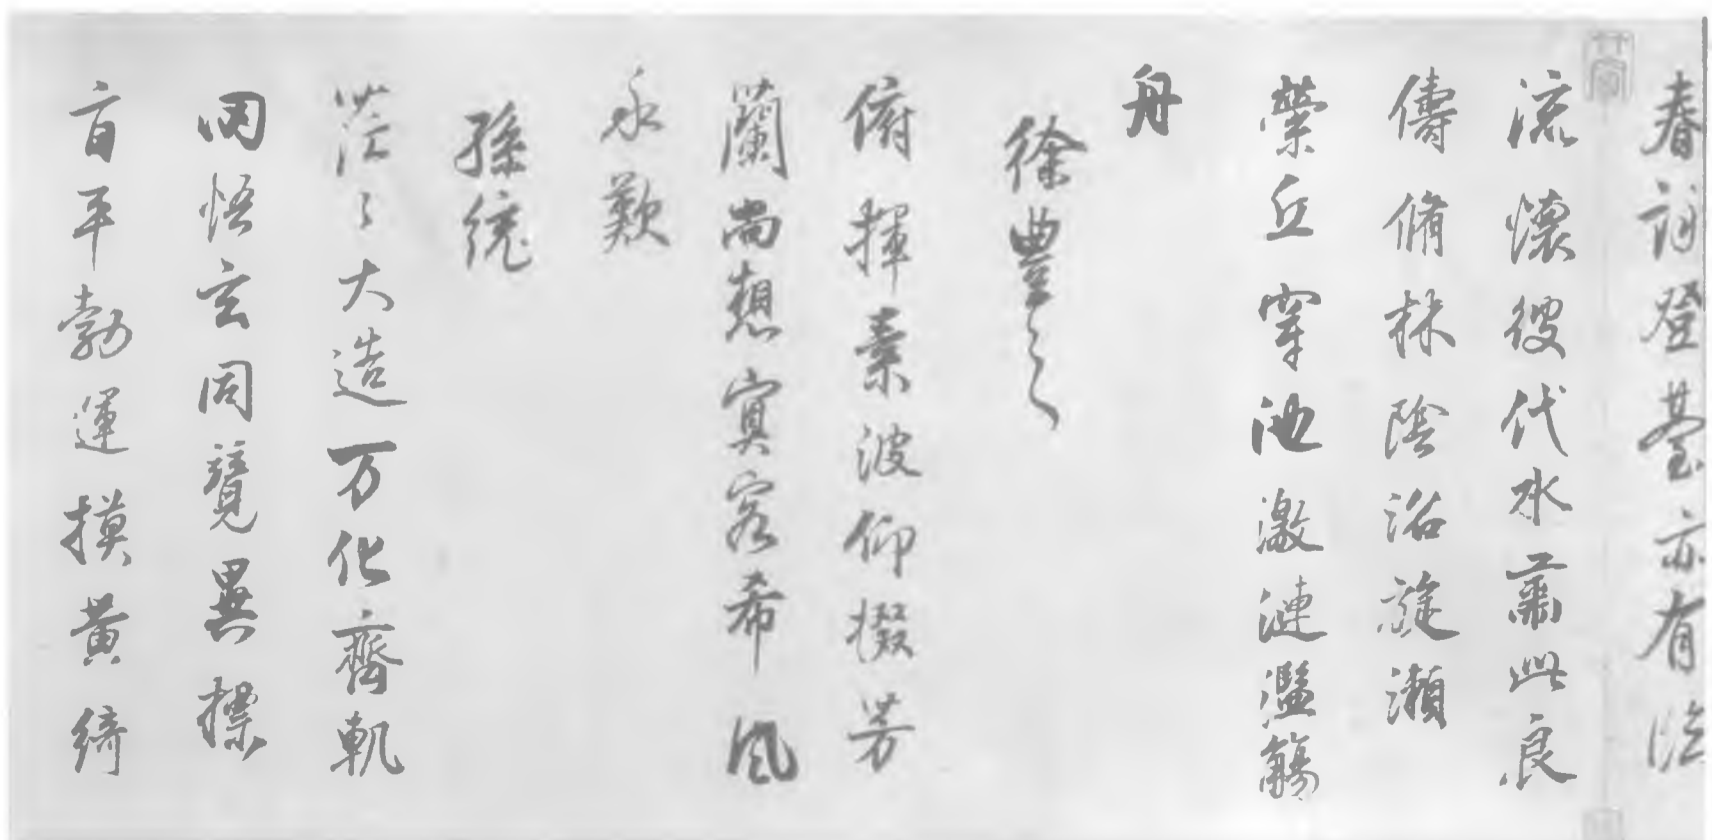 春詞登臺亦有臨
流懷彼伐木肅此良
儔脩林陰沼旋瀨
縈丘穿池激漣濫觴
舟
徐豐之
俯揮素波仰掇芳
蘭尚想冥客希風
永歎
孫統
茫〻大造万化齊軌
罔悟玄同覽異摽
旨平勃運摸黃綺